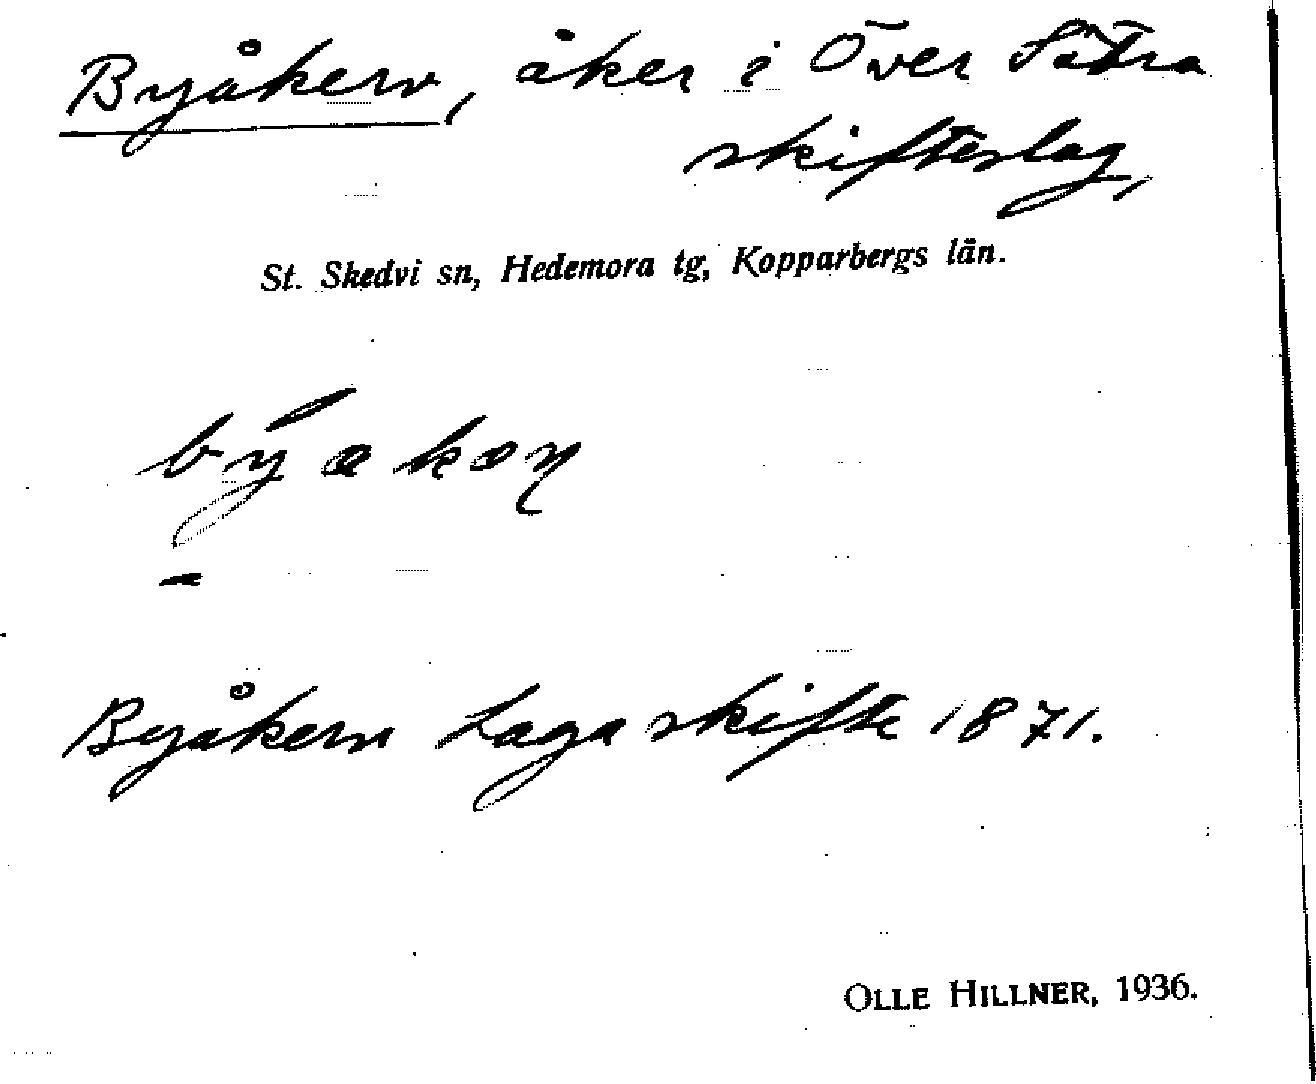 Byåkern, åker i Över Sätra
skifteslag,
St. Skedvi sn, Hedemora tg, Kopparbergs län.
Byåkern Laga skifte 1871.
OLLE HILLNER, 1936.